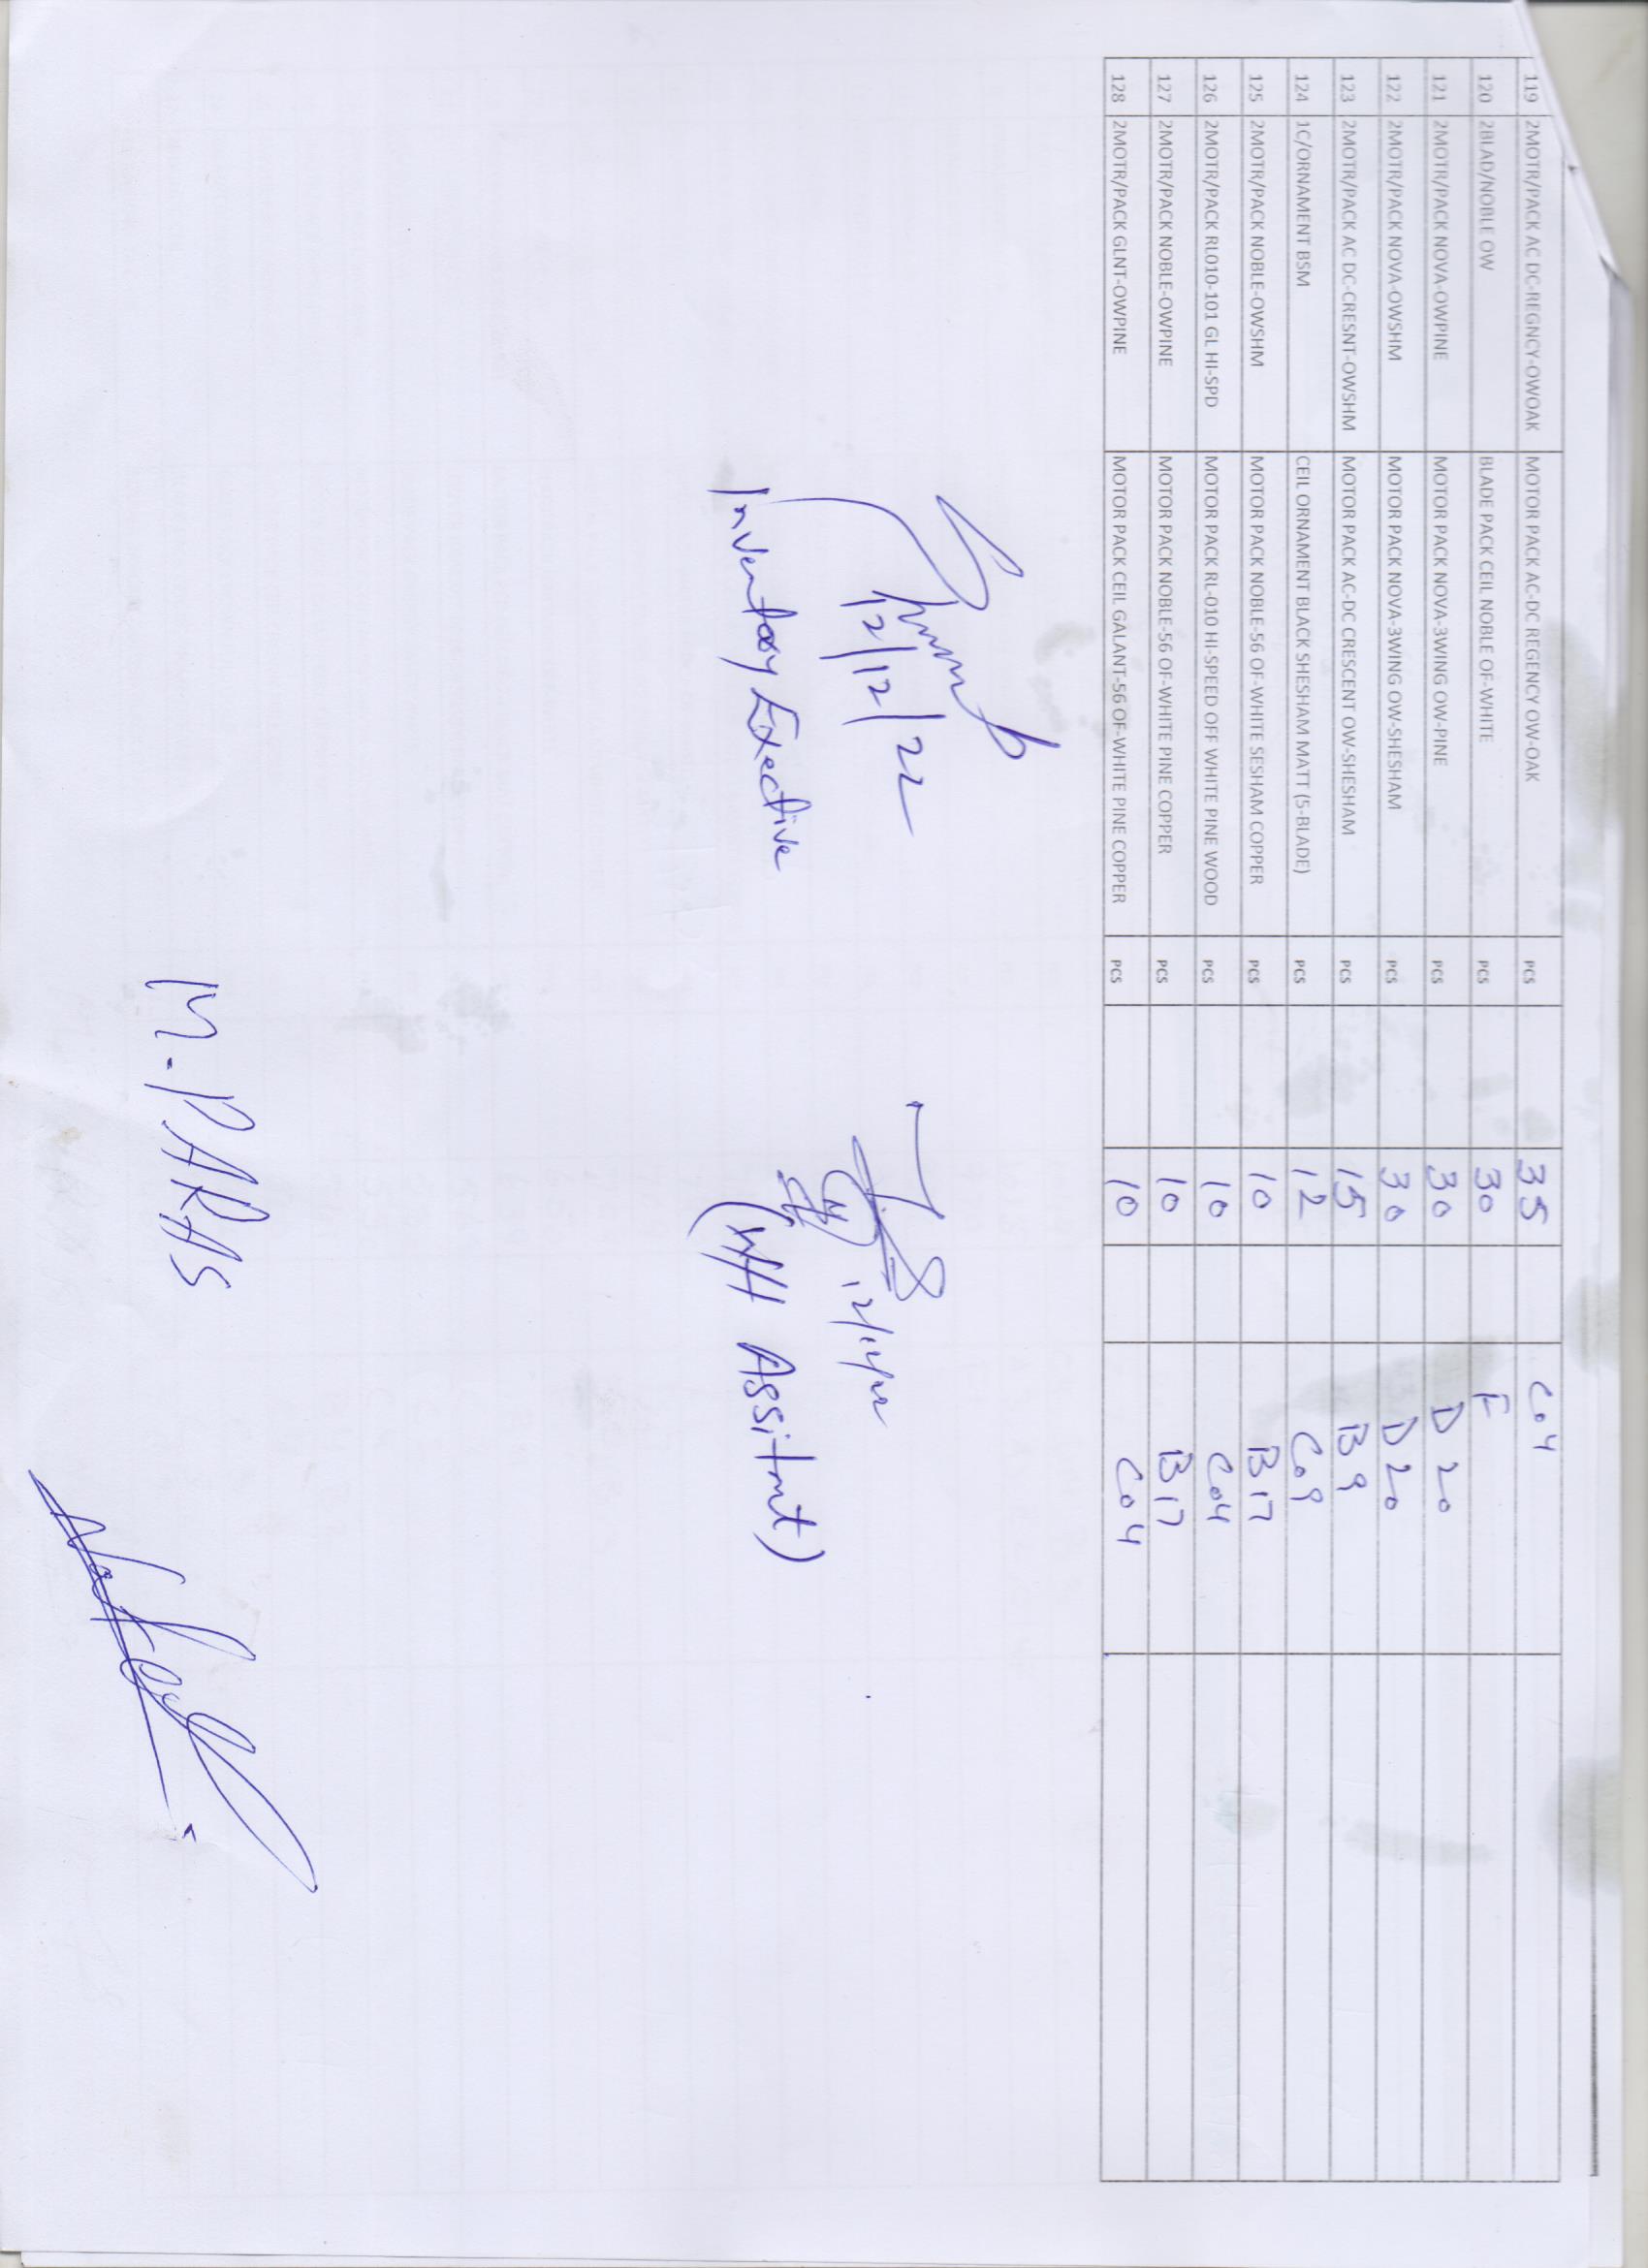 119 2MOTR/PACK AC DC-REGNCY-OWOAK MOTOR PACK AC-DC REGENCY OW-OAK PCS 35 C04
120 2BLAD/NOBLE OW BLADE PACK CEIL NOBLE OF-WHITE PCS 30 F
121 2MOTR/PACK NOVA-OWPINE MOTOR PACK NOVA-3WING OW-PINE PCS 30 D 20
122 2MOTR/PACK NOVA-OWSHM MOTOR PACK NOVA-3WING OW-SHESHAM PCS 30 D 20
123 2MOTR/PACK AC DC-CRESNT-OWSHM MOTOR PACK AC-DC CRESCENT OW-SHESHAM PCS 15 B 9
124 1C/ORNAMENT BSM CEIL ORNAMENT BLACK SHESHAM MATT (5-BLADE) PCS 12 C09
125 2MOTR/PACK NOBLE-OWSHM MOTOR PACK NOBLE-56 OF-WHITE SESHAM COPPER PCS 10 B 17
126 2MOTR/PACK RL010-101 GL HI-SPD MOTOR PACK RL-010 HI-SPEED OFF WHITE PINE WOOD PCS 10 C04
127 2MOTR/PACK NOBLE-OWPINE MOTOR PACK NOBLE-56 OF-WHITE PINE COPPER PCS 10 B 17
128 2MOTR/PACK GLNT-OWPINE MOTOR PACK CEIL GALANT-56 OF-WHITE PINE COPPER PCS 10 C04
12/12/22
Inventory Exective
(W/H Assitnt)
M.PARAS